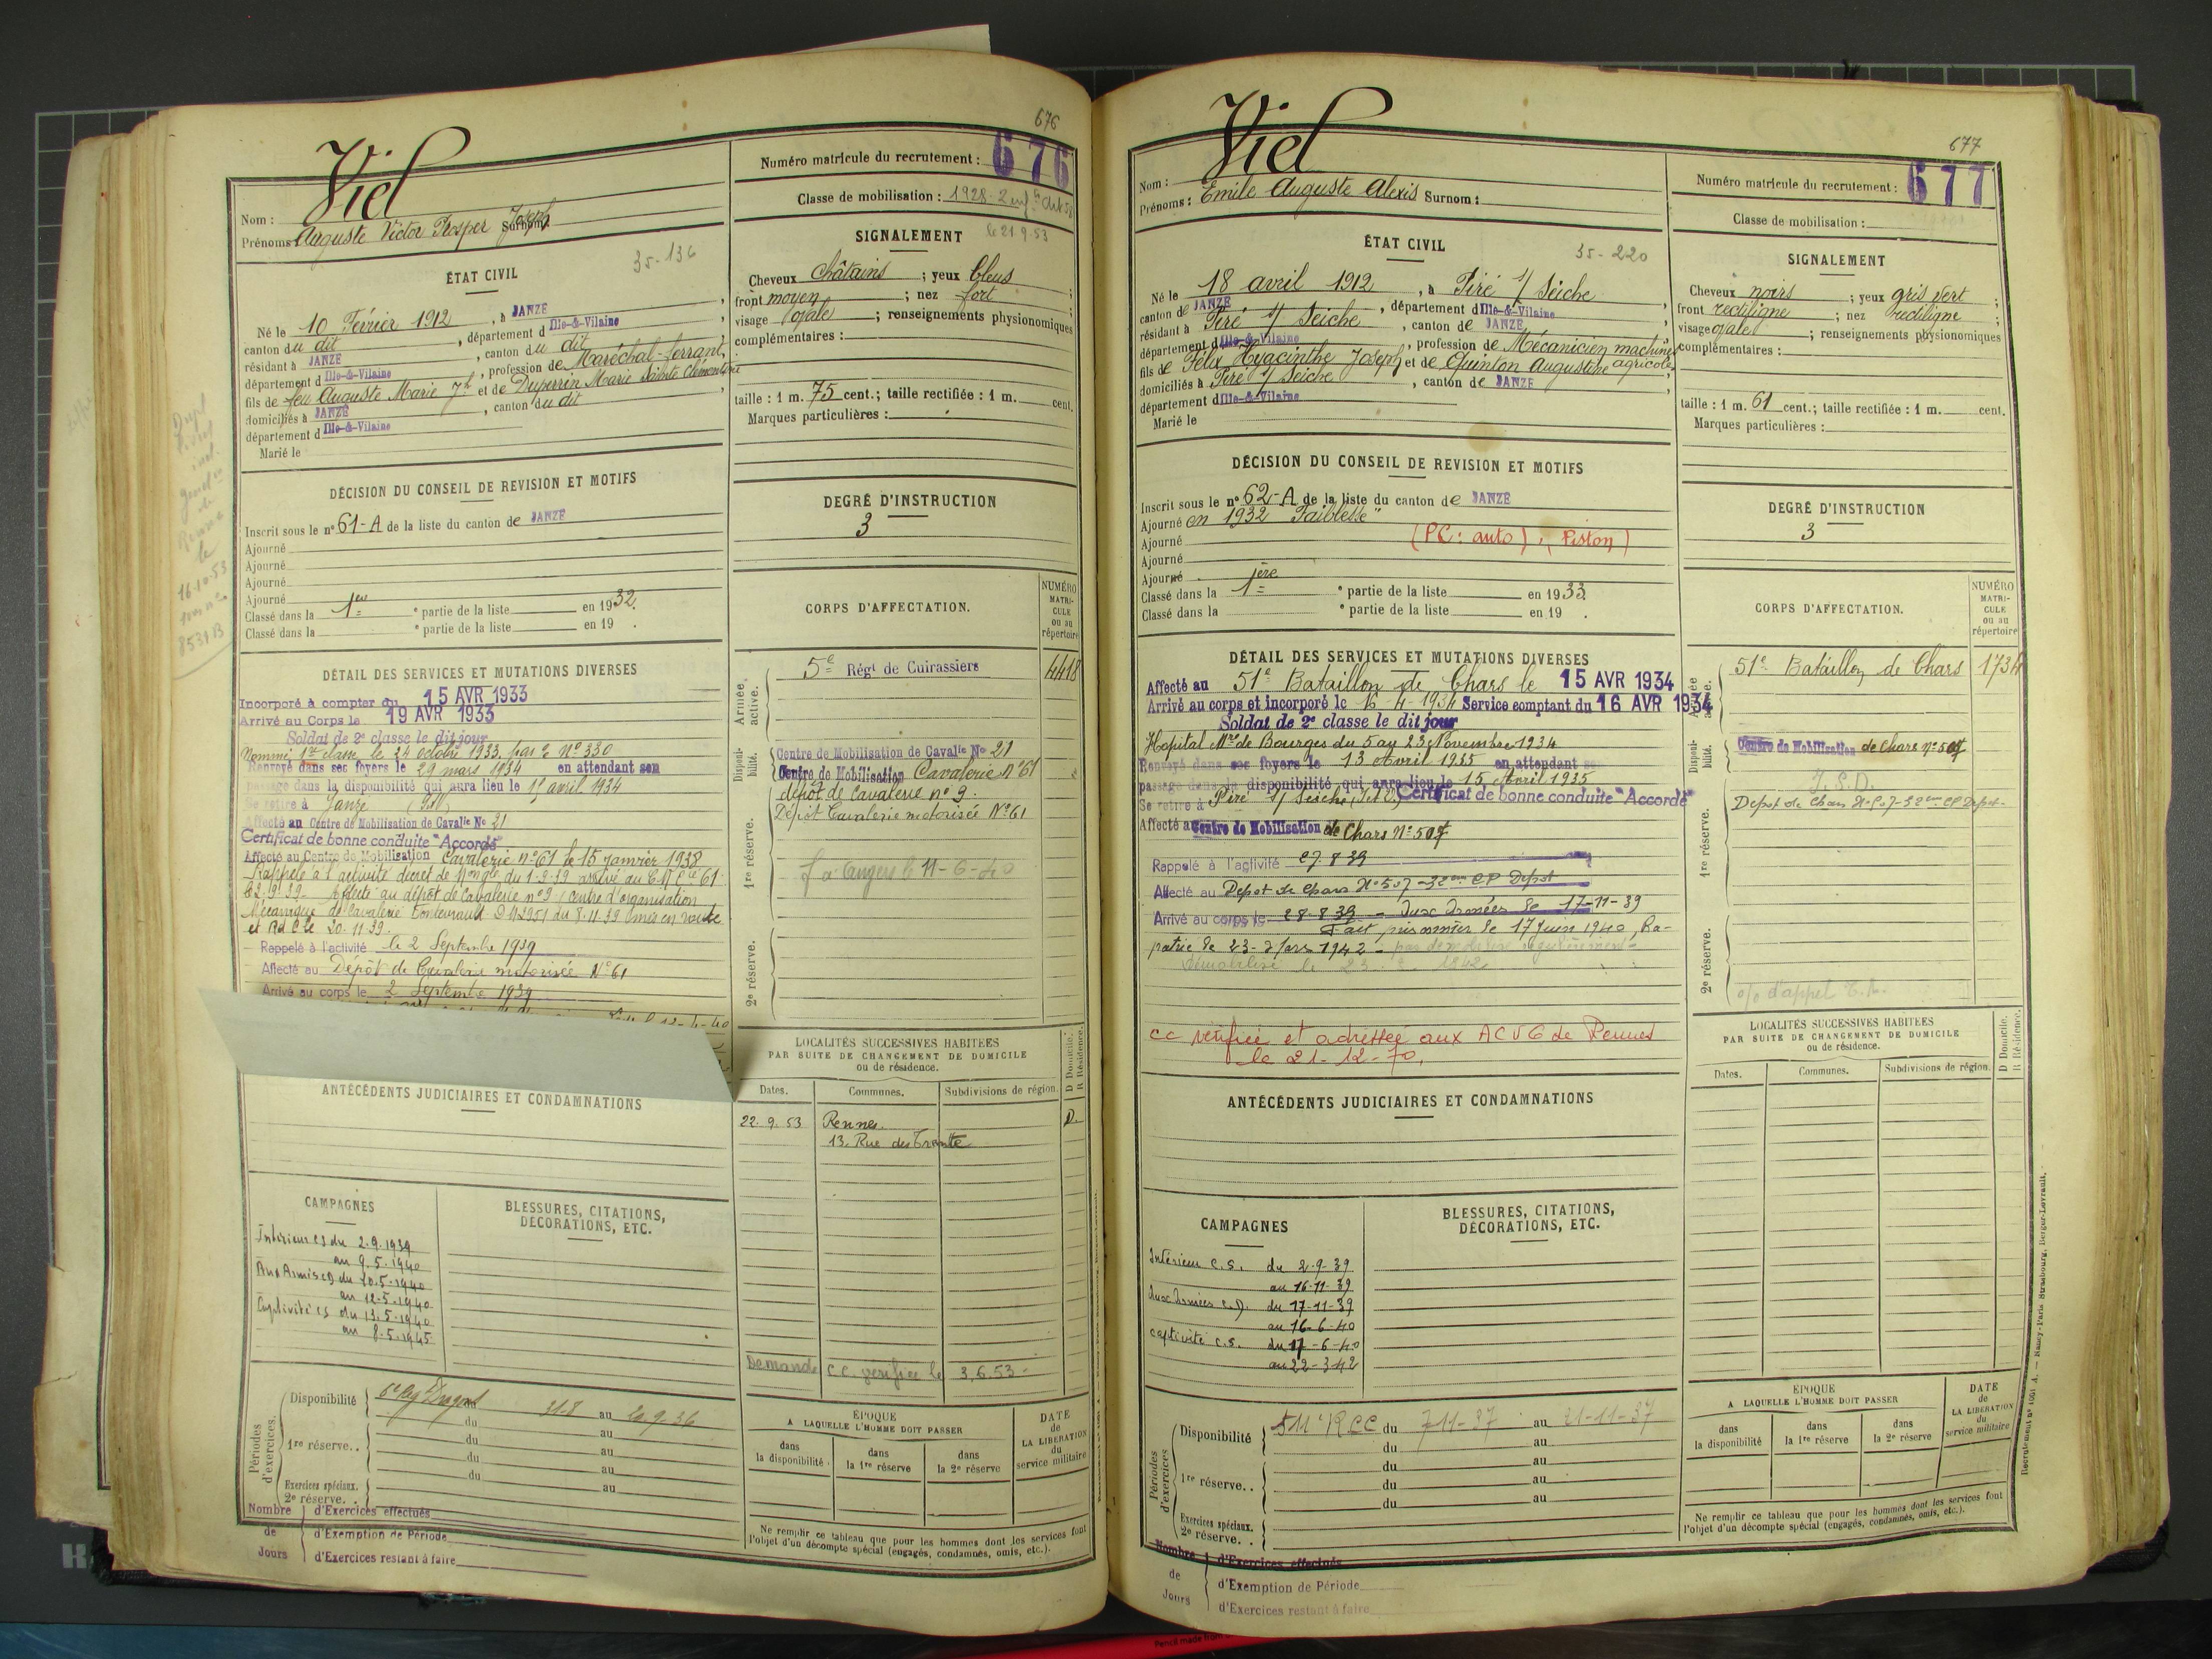 676
Viel
Nom :
Prénoms : Auguste Victor Prosper Joseph Surnom :
35-136
ÉTAT CIVIL
Né le 10 Février 1912, à JANZÉ
canton du dit, département d Ille-&-Vilaine,
résidant à JANZÉ, canton du dit
département d Ille-&-Vilaine, profession de Maréchal-ferrant,
fils de feu Auguste Marie Jh et de Duperrin Marie Sainte Clémentine
domiciliés à JANZÉ, canton du dit
département d Ille-&-Vilaine
Marié le
DÉCISION DU CONSEIL DE REVISION ET MOTIFS
Inscrit sous le n° 61-A de la liste du canton de JANZÉ
Ajourné
Ajourné
Ajourné
Ajourné
Classé dans la 1ère ° partie de la liste en 1932.
Classé dans la ° partie de la liste en 19 .
DÉTAIL DES SERVICES ET MUTATIONS DIVERSES
Incorporé à compter du 15 AVR 1933
Arrivé au Corps le 19 AVR 1933
Soldat de 2e classe le dit jour
Nommé 1re classe le 24 octobre 1933. N° 330
Renvoyé dans ses foyers le 29 mars 1934 en attendant son
passage dans la disponibilité qui aura lieu le 15 avril 1934
Se retire à Janzé (I&V)
Affecté au Centre de Mobilisation de Cavalie No 21
Certificat de bonne conduite "Accordé"
Affecté au Centre de Mobilisation Cavalerie n° 61 le 15 janvier 1938
Rappelé à l'activité décret de du 1-9-39 arrivé au 61
le 2.9.39. Affecté au dépôt de Cavalerie n° 9 centre d'organisation
Mécanique de Cavalerie Fontevrault du 8.11.39 mis en route
et le 20.11.39.
Rappelé à l'activité le 2 Septembre 1939
Affecté au Dépôt de Cavalerie motorisée N° 61
Arrivé au corps le 2 Septembre 1939
ANTÉCÉDENTS JUDICIAIRES ET CONDAMNATIONS
CAMPAGNES
Intérieur CS du 2.9.1939
au 9.5.1940
Aux Armées CD du 10.5.1940
au 12.5.1940
Captivité CS du 13.5.1940
au 8.5.1945
BLESSURES, CITATIONS,
DÉCORATIONS, ETC.
Périodes d'exercices.
Disponibilité 6e Rég Dragons 31-8 au 20.9.36
du au
1re réserve. . du au
du au
Exercices spéciaux. du au
2e réserve. .
Nombre de Jours
d'Exercices effectués
d'Exemption de Période
d'Exercices restant à faire
Numéro matricule du recrutement : 676
Classe de mobilisation : 1928-2
le 21.9.53
SIGNALEMENT
Cheveux châtains ; yeux bleus ;
front moyen ; nez fort ;
visage ovale ; renseignements physionomiques
complémentaires :
taille : 1 m. 75 cent.; taille rectifiée : 1 m. cent.
Marques particulières :
DEGRÉ D'INSTRUCTION
3
CORPS D'AFFECTATION.
NUMÉRO MATRICULE ou au répertoire
Armée active.
5e Régt de Cuirassiers 4418
Disponibilité.
Centre de Mobilisation de Cavalie No 21
Centre de Mobilisation Cavalerie N° 61
1re réserve.
dépôt de Cavalerie n° 9.
Dépôt Cavalerie motorisée N° 61
f. à Angers le 11-6-40
2e réserve.
LOCALITÉS SUCCESSIVES HABITÉES
PAR SUITE DE CHANGEMENT DE DOMICILE
ou de résidence.
D Domicile.
R Résidence.
Dates. Communes. Subdivisions de région.
22.9.53 Rennes. D.
13, Rue du Trente
Demande c.c. vérifiée le 3.6.53-
ÉPOQUE
A LAQUELLE L'HOMME DOIT PASSER
dans la disponibilité dans la 1re réserve dans la 2e réserve
DATE de LA LIBÉRATION du service militaire
Ne remplir ce tableau que pour les hommes dont les services font
l'objet d'un décompte spécial (engagés, condamnés, omis, etc.).
677
Viel
Nom :
Prénoms : Emile Auguste Alexis Surnom :
35-220
ÉTAT CIVIL
Né le 18 avril 1912, à Piré s/ Seiche,
canton de JANZÉ, département d Ille-&-Vilaine
résidant à Piré s/ Seiche, canton de JANZÉ
département d Ille-&-Vilaine, profession de Mécanicien machines agricoles
fils de Félix Hyacinthe Joseph et de Quinton Augustine
domiciliés à Piré s/ Seiche, canton de JANZÉ
département d Ille-&-Vilaine
Marié le
DÉCISION DU CONSEIL DE REVISION ET MOTIFS
Inscrit sous le n° 62-A de la liste du canton de JANZÉ
Ajourné en 1932 "Faiblesse"
Ajourné (PC : auto), (Piston)
Ajourné
Ajourné
Classé dans la 1ère ° partie de la liste en 1933.
Classé dans la ° partie de la liste en 19 .
DÉTAIL DES SERVICES ET MUTATIONS DIVERSES
Affecté au 51e Bataillon de Chars le 15 AVR 1934
Arrivé au corps et incorporé le 16-4-1934 Service comptant du 16 AVR 1934
Soldat de 2e classe le dit jour
Hopital Mre de Bourges du 5 au 23 Novembre 1934
Renvoyé dans ses foyers le 13 Avril 1935 en attendant son
passage dans la disponibilité qui aura lieu le 15 Avril 1935
Se retire à Piré s/ Seiche, (I&V) Certificat de bonne conduite "Accordé"
Affecté au Centre de Mobilisation de Chars N° 507
Rappelé à l'activité 27.8.39
Affecté au Dépôt de Chars N° 507-32ème CP Dépôt
Arrivé au corps le 28-8-39 - Aux Armées le 17-11-39
Fait prisonnier le 17 Juin 1940, Ra-
patrié le 23-3 1942 -
Démobilisé le 23 1942
cc vérifiée et adressée aux ACVG de Rennes
le 21-12-70.
ANTÉCÉDENTS JUDICIAIRES ET CONDAMNATIONS
CAMPAGNES
Intérieur C.S. du 2.9.39
au 16-11-39
Aux Armées C.D. du 17-11-39
au 16-6-40
Captivité C.S. du 17-6-40
au 22-3-42
BLESSURES, CITATIONS,
DÉCORATIONS, ETC.
Périodes d'exercices
Disponibilité 511e RCC du 7-11-37 au 21-11-37
du au
1re réserve. . du au
du au
du au
Exercices spéciaux.
2e réserve. .
Nombre de Jours
d'Exercices effectués
d'Exemption de Période
d'Exercices restant à faire
Numéro matricule du recrutement : 677
Classe de mobilisation :
SIGNALEMENT
Cheveux noirs ; yeux gris vert ;
front rectiligne ; nez rectiligne ;
visage ovale ; renseignements physionomiques
complémentaires :
taille : 1 m. 61 cent.; taille rectifiée : 1 m. cent.
Marques particulières :
DEGRÉ D'INSTRUCTION
3
CORPS D'AFFECTATION.
NUMÉRO MATRICULE ou au répertoire
Armée active.
51e Bataillon de Chars 1734
Disponibilité.
Centre de Mobilisation de Chars N° 507
1re réserve.
Dépot de Chars N° 507-32ème CP Dépot-
2e réserve.
LOCALITÉS SUCCESSIVES HABITÉES
PAR SUITE DE CHANGEMENT DE DOMICILE
ou de résidence.
D Domicile.
R Résidence.
Dates. Communes. Subdivisions de région.
ÉPOQUE
A LAQUELLE L'HOMME DOIT PASSER
dans la disponibilité dans la 1re réserve dans la 2e réserve
DATE de LA LIBÉRATION du service militaire
Ne remplir ce tableau que pour les hommes dont les services font
l'objet d'un décompte spécial (engagés, condamnés, omis, etc.).
Recrutement n° 1001 A. — Nancy-Paris-Strasbourg, Berger-Levrault.